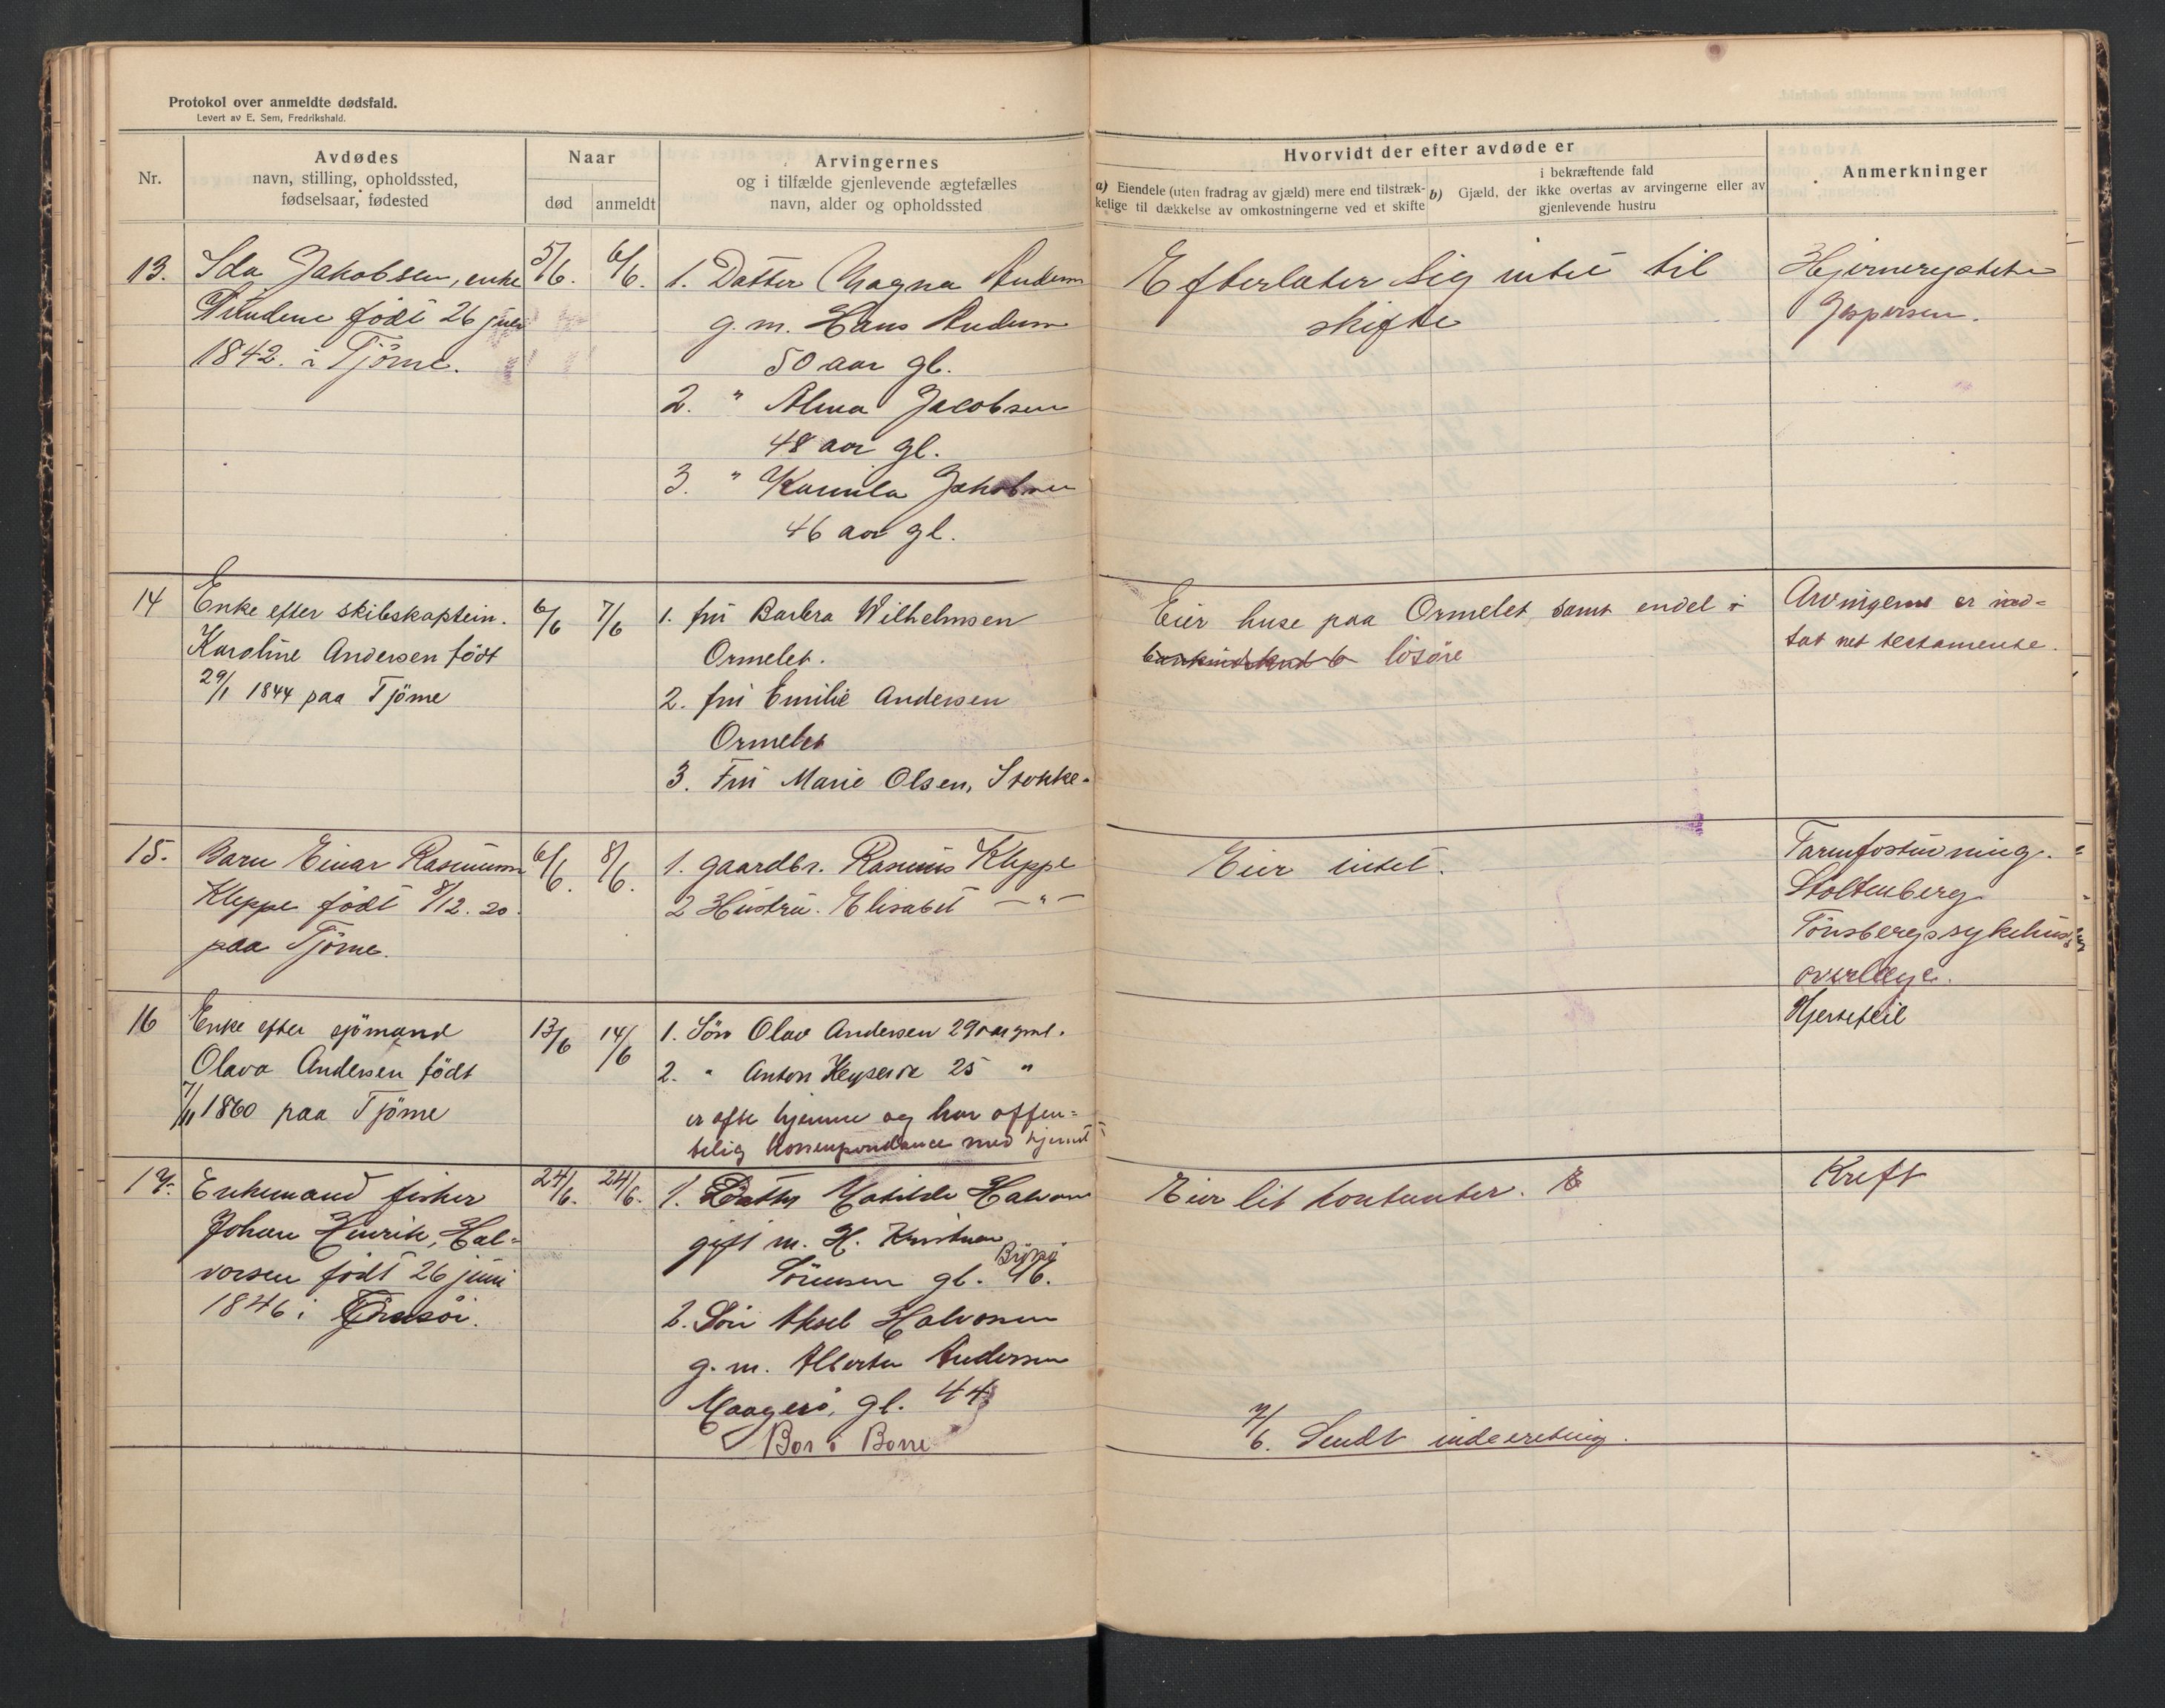 Protokol over anmeldte dødsfald.
Levert av E. Sem, Fredrikshald.
Nr.
Avdødes
navn, stilling, opholdssted,
fødselsaar, fødested
Naar
død
anmeldt
Arvingernes
og i tilfælde gjenlevende ægtefælles
navn, alder og opholdssted
Hvorvidt der efter avdøde er
a) Eiendele (uten fradrag av gjæld) mere end tilstræk-
kelige til dækkelse av omkostningerne ved et skifte
i bekræftende fald
b) Gjæld, der ikke overtas av arvingerne eller av
gjenlevende hustru
Anmerkninger
13.
Ida Jakobsen, enke
født 26 juli
1842. i Tjöme.
5/6.
6/6.
1. Datter Magna Andersen
g. m. Hans Andersen
50 aar gl.
2. " Alma Jacobsen
48 aar gl.
3. " Kamila Jakobsen
46 aar gl.
Efterlater sig intet til
skifte
Hjernerystelse
Jespersen.
14
Enke efter skibskaptein.
Karoline Andersen født
29/1 1844 paa Tjöme
6/6
7/6
1. fru Barbra Wilhelmsen
Ormelet.
2. fru Emilie Andersen
Ormelet
3. Fru Marie Olsen, Stokke.
Eier huse paa Ormelet samt endel i
lösöre
Arvingerne er ind-
sat ved testamente.
15.
Barn Einar Rasmussen
Kleppe født 8/12. 20.
paa Tjöme.
6/6.
8/6.
1. gaardbr. Rasmus Kleppe
2 Hustru. Elisabet — " —
Eier intet.
Tarmforsturning.
Stoltenberg
Tönsbergs sykehus
overlæge.
16
Enke efter sjömand
Olava Andersen født
7/11 1860 paa Tjöme
13/6
14/6
1. Sön Olav Andersen 29 aar gml.
2. " Anton Keyser 25 "
er ofte hjemme og har offen-
telig korrespondance med hjemmet
Hjertefeil
17.
Enkemand fisker
Johan Henrik, Hal-
vorsen født 26 juni
1846 i
24/6.
24/6.
1. Datter Matilde Halvorsen
gift m. H. Kristian
Sörensen gl. 46.
2. Sön Aksel Halvorsen
g. m. Alberta Andersen
Maagerö, gl. 44
Bor i Borre
Eier lit kontanter.
7/6. Sendt indberetning.
Kreft